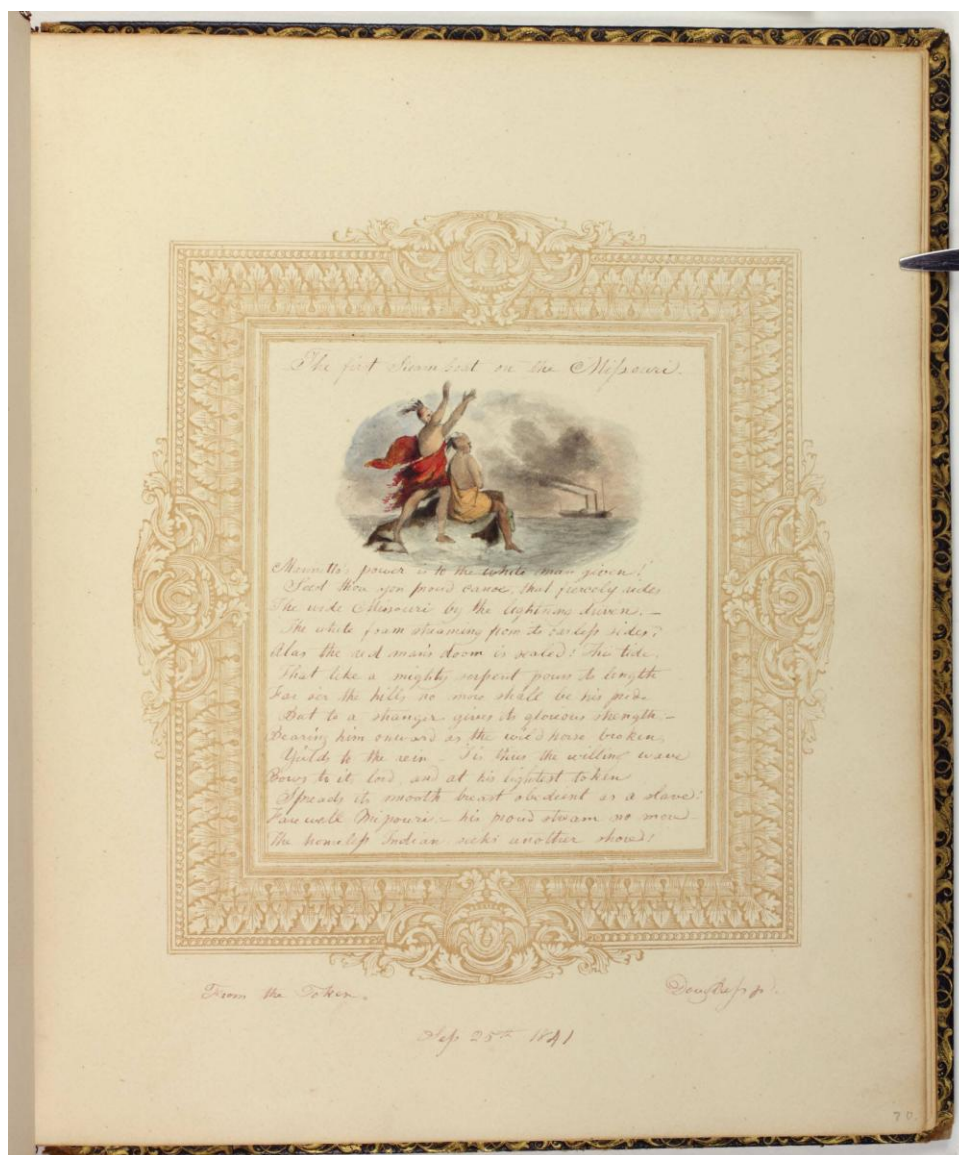 The first Steam boat on the Missouri.
Mannitto's power is to the white man given!
Seest thou yon proud canoe, that fiercely rides
The wide Missouri by the lightning driven. –
The white foam streaming from its careless sides?
Alas the red man's doom is sealed! The tide,
That like a mighty serpent pours its length
Far o'er the hills, no more shall be his pride
But to a stranger gives its glorious strength –
Bearing him onward as the wild horse broken,
Yields to the rein – Tis thus the willing wave
Bows to its lord, and at his lightest token
Spreads its smooth breast obedient as a slave!
Farewell Missouri – his proud stream no more
The homeless Indian seeks another shore!
From the Token.
25th 1841
70